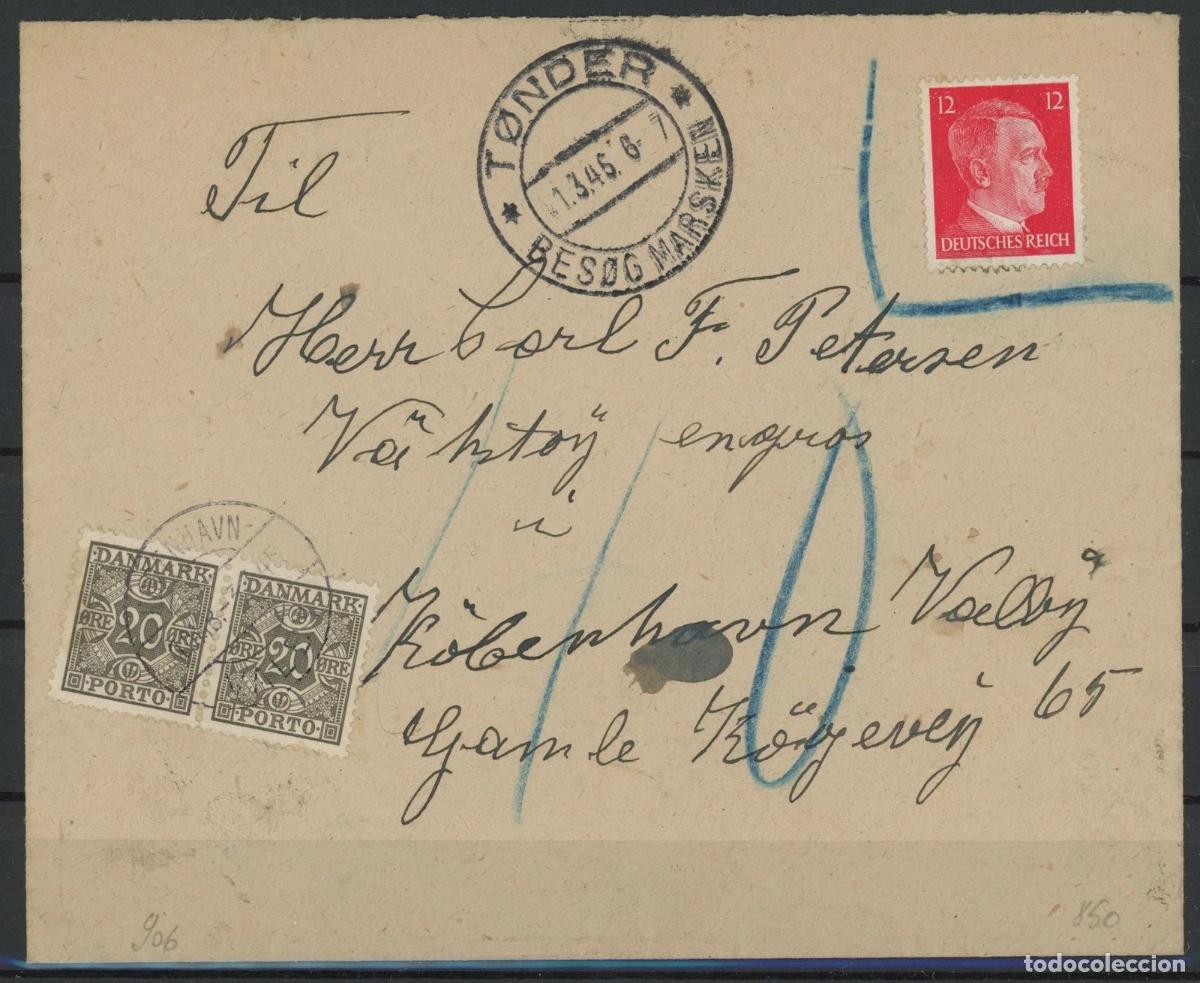 TØNDER
1.3.46. 6-7
BESØG MARSKEN
12 12
DEUTSCHES REICH
Til
Herr Carl F. Petersen
engros
i
Köbenhavn Valby
Gamle Kögevej 65
10
HAVN
DANMARK
20
ØRE ØRE
PORTO
DANMARK
20
ØRE ØRE
PORTO
906
850
todocoleccion